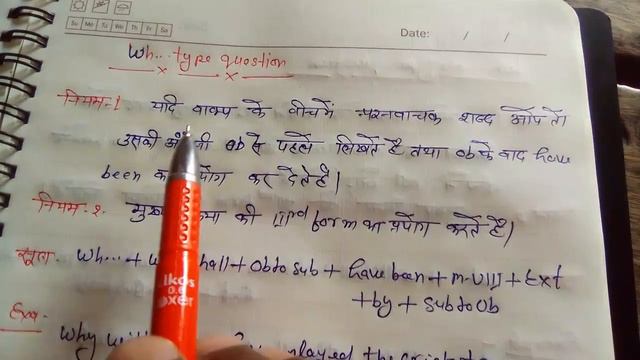 Su Mo Tu We Th Fr Sa
Date: / /
Wh... type question
नियम-1 यदि वाक्य के बीचमें प्रश्नवाचक शब्द आऐ तो
उसकी ob से पहले लिखते है तथा ob के बाद have
been का कर देते है।
नियम-2. की IIIrd form का प्रयोग करते है।
सूत्र- Wh... + hall + Ob to Sub + have been + m.VIII + Ext
+ by + Sub to Ob
Exa.
Why played the